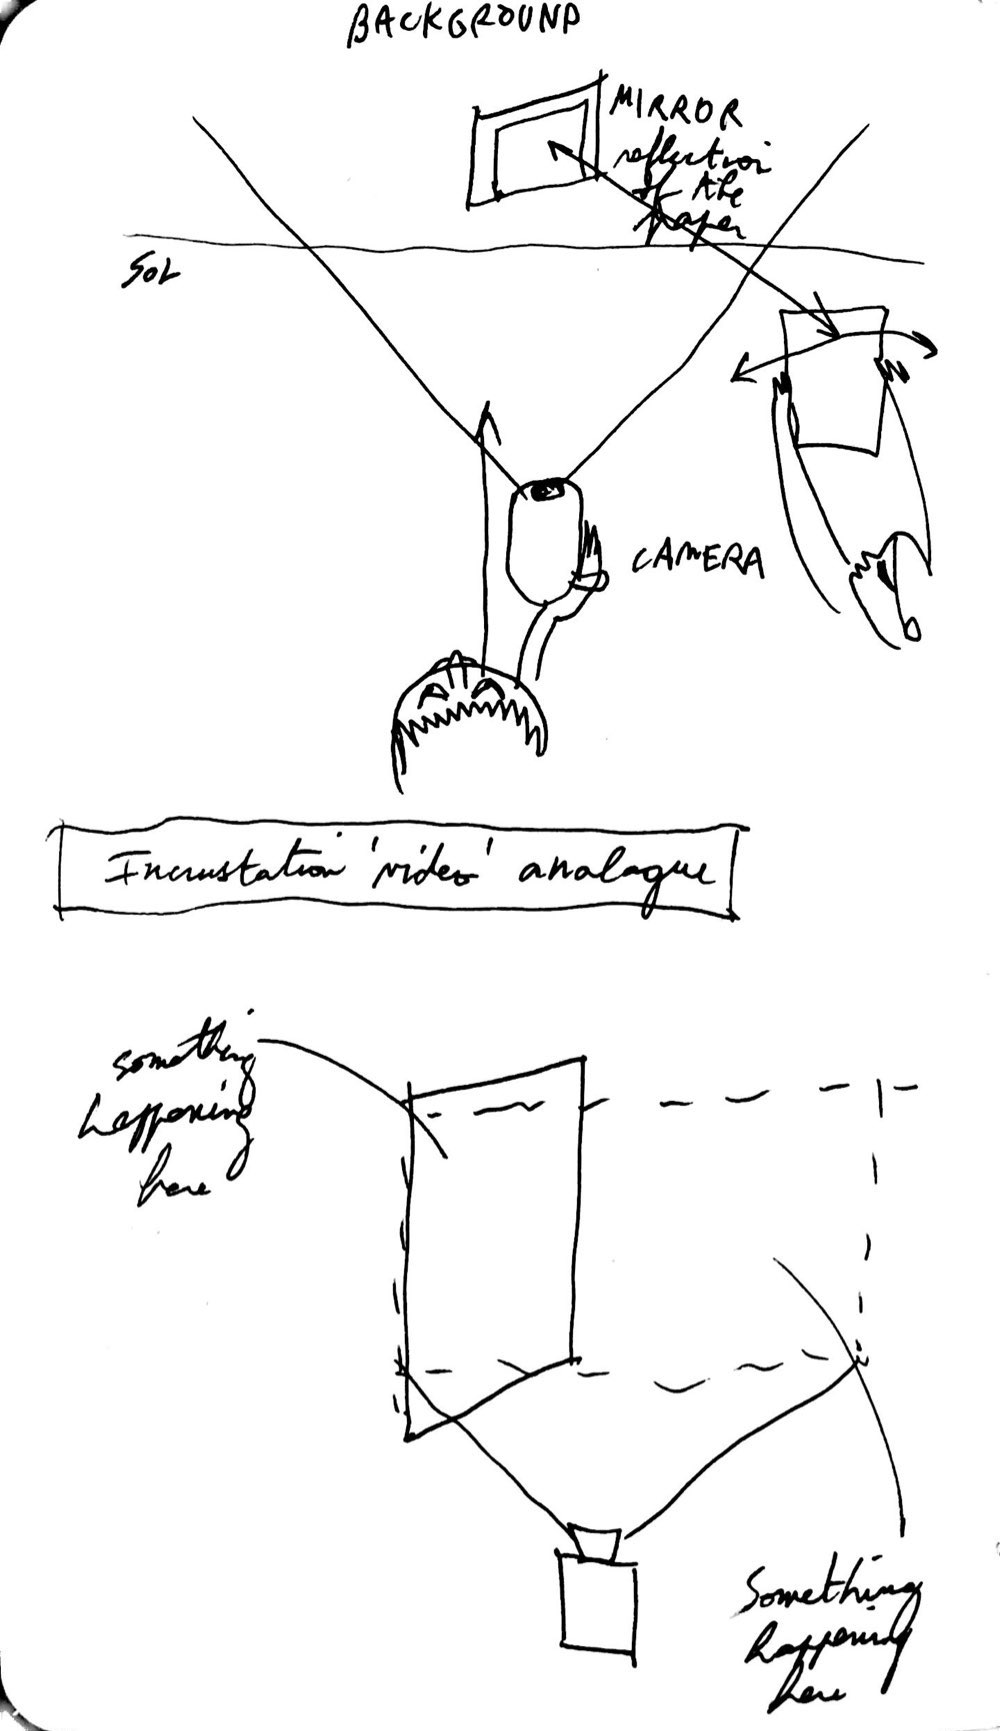 BACKGROUND
MIRROR
reflection
of the
paper
SOL
CAMERA
Incrustation 'video' analogue
something
happening
here
Something
happening
here